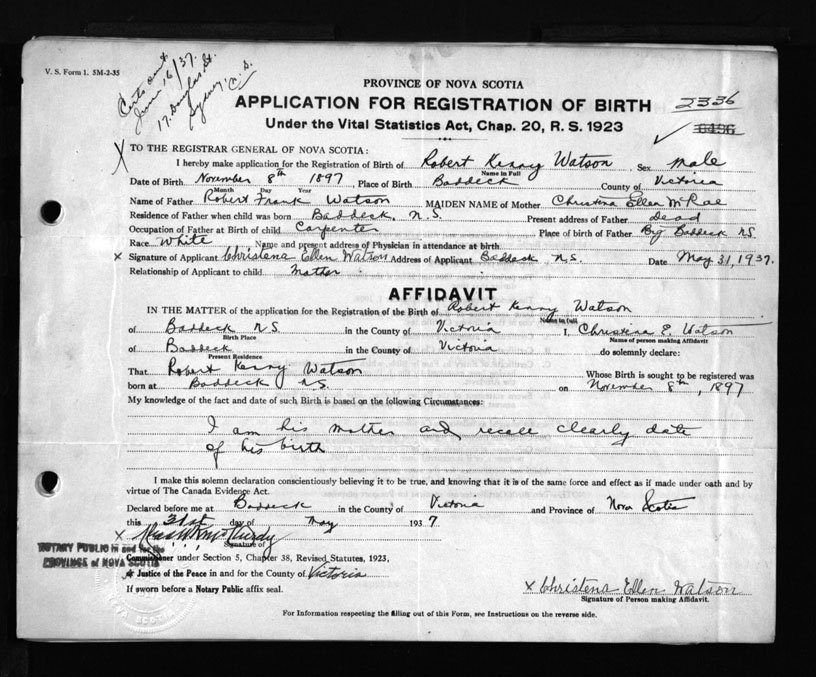 V. S. Form 1. 5M-2-35
Certs sent
June 16/37.
17 Douglas St.
Sydney, C. B.
PROVINCE OF NOVA SCOTIA
APPLICATION FOR REGISTRATION OF BIRTH
2336
Under the Vital Statistics Act, Chap. 20, R. S. 1923
6496
X TO THE REGISTRAR GENERAL OF NOVA SCOTIA:
I hereby make application for the Registration of Birth of Robert Kenny Watson, Sex male
Name in Full
Date of Birth November 8th 1897, Place of Birth Baddeck County of Victoria
Month Day Year
Name of Father Robert Frank Watson MAIDEN NAME of Mother Christina Ellen McRae
Residence of Father when child was born Baddeck, N.S. Present address of Father dead
Occupation of Father at Birth of child Carpenter Place of birth of Father Big Baddeck N.S.
Race White Name and present address of Physician in attendance at birth
X Signature of Applicant Christena Ellen Watson Address of Applicant Baddeck N.S. Date May 31, 1937.
Relationship of Applicant to child Mother
AFFIDAVIT
IN THE MATTER of the application for the Registration of the Birth of Robert Kenny Watson
Name in full
of Baddeck N.S. in the County of Victoria I, Christina E. Watson
Birth Place Name of person making Affidavit
of Baddeck in the County of Victoria do solemnly declare:
Present Residence
That Robert Kenny Watson Whose Birth is sought to be registered was
born at Baddeck N.S. on November 8th, 1897
My knowledge of the fact and date of such Birth is based on the following Circumstances:
I am his mother and recall clearly date
of his birth
I make this solemn declaration conscientiously believing it to be true, and knowing that it is of the same force and effect as if made under oath and by
virtue of The Canada Evidence Act.
Declared before me at Baddeck in the County of Victoria and Province of Nova Scotia
this 31st day of May 1937
X
Signature of
NOTARY PUBLIC in and for the
PROVINCE OF NOVA SCOTIA
Commissioner under Section 5, Chapter 38, Revised Statutes, 1923,
or Justice of the Peace in and for the County of Victoria
If sworn before a Notary Public affix seal.
X Christena Ellen Watson
Signature of Person making Affidavit.
For Information respecting the filling out of this Form, see Instructions on the reverse side.